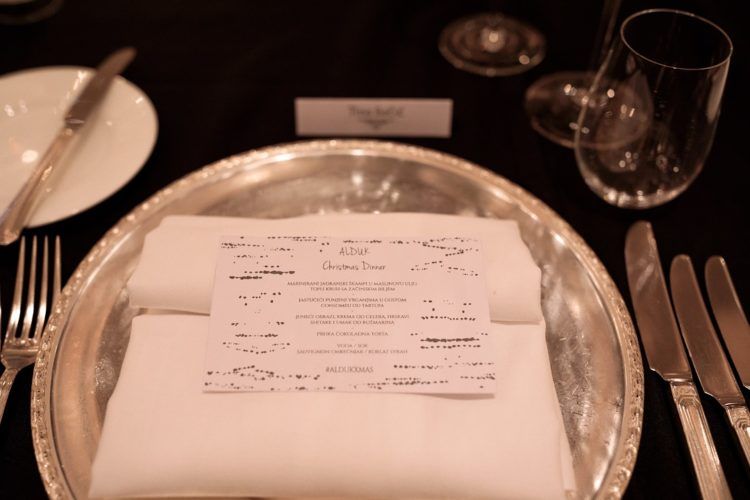 ALDUK
Christmas Dinner
MARINIRANI JADRANSKI ŠKAMPI U MASLINOVU ULJU
TOPLI KRUH SA ZAČINSKIM BILJEM
JASTUČIĆI PUNJENI VRGANJIMA U GUSTOM
CONSOMEU OD TARTUFA
JUNEĆI OBRAZI, KREMA OD CELERA, HRSKAVI
SHIITAKE I UMAK OD RUŽMARINA
PRHKA ČOKOLADNA TORTA
VODA / SOK
SAUVIGNON / KORLAT SYRAH
#ALDUKXMAS